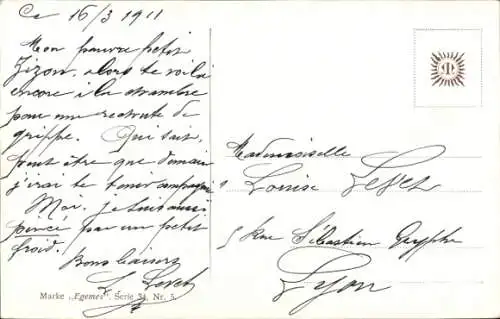 Ce 16/3 1911
Mon pauvre petit
Zizon, alors te voilà
encore à la chambre
pour une rechute de
grippe. Qui sait,
peut être que demain
j'irai te tenir compagnie
Moi, je suis aussi
pincé par un petit
froid.
Bons baisers
Marke „Egemes“. Serie 34, Nr. 5.
Mademoiselle
Louise
5 Rue Sébastien Gryphe
Lyon